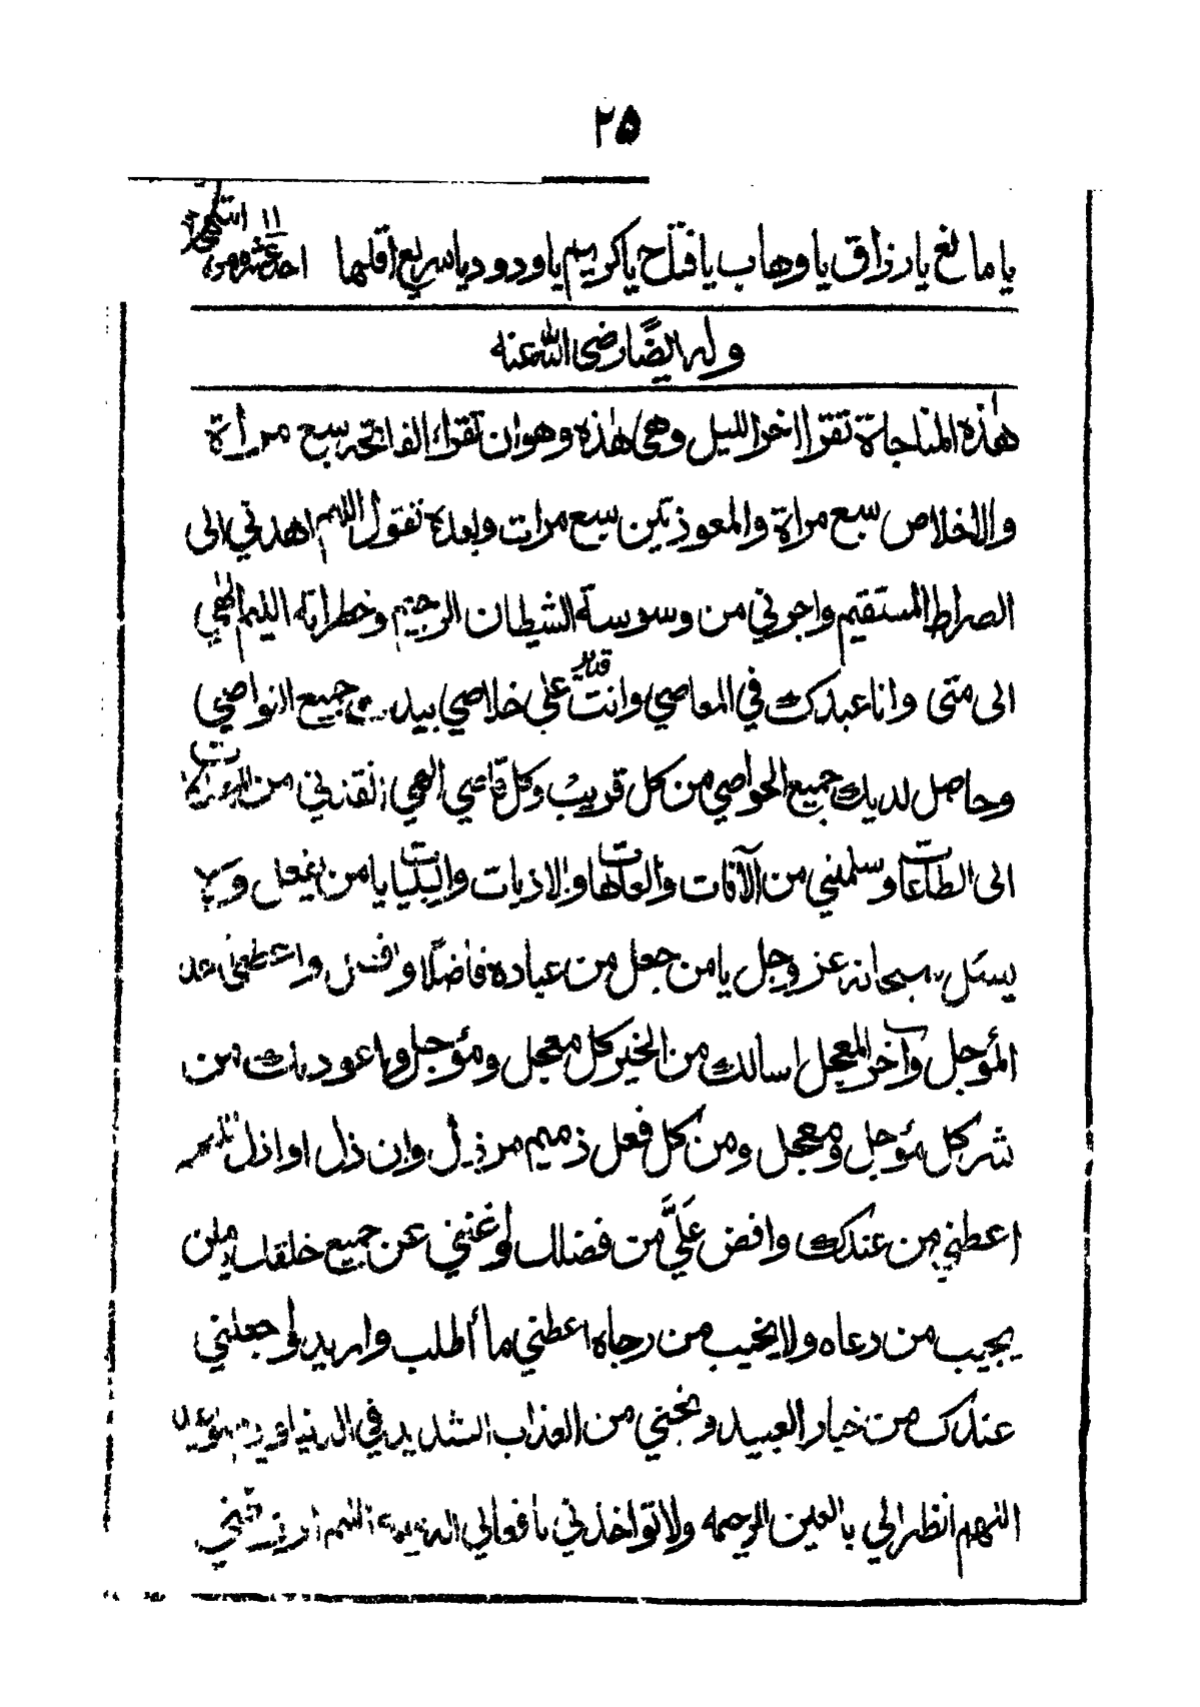 ٢٥
يا مانع يا رزاق يا وهاب يا فتاح يا كريم يا ودود يا سريع اقلها ١١ احد عشر مره انتهى
وله ايضًا رضى الله عنه
هٰذه المناجاة تقرا اخر الليل وهي هٰذه وهو ان تقراء الفاتحه سبع مراة
والاخلاص سبع مراة والمعوذتين سبع مرات وبعده تقول اللهم اهدني الى
الصراط المستقيم واجرني من وسوسة الشيطان الرجيم وخطراته اللئيم الٰهي
الى متى وانا عبدك في المعاصي وانت قدير على خلاصي بيدك جميع النواصي
وحاصل لديك جميع الحواصي من كل قريب وكل قاصي الٰهي انقذني من
الى الطاعات وسلمني من الآفات والعاهات والاذيات والبليات يا من يفعل ولا
يسئل سبحانه عز وجل يا من جعل من عباده فاضلًا و واعطني
المؤجل وآخر المعجل اسالك من الخير كل معجل ومؤجل واعوذ بك من
شر كل مؤجل ومعجل ومن كل فعل ذميم مرذل وان ذل او اذل
اعطني من عندك وافض عَلَيَّ من فضلك واغنني عن جميع خلقك يا من
يجيب من دعاه ولا يخيب من رجاه اعطني ما أطلب واريد واجعلني
عندك من خيار العبيد ونجني من العذاب الشديد في الدنيا
اللهم انظر الي بالعين الرحمه ولا تواخذني بافعالي